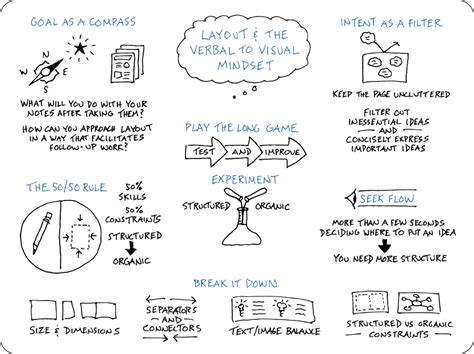 GOAL AS A COMPASS
N
W
E
S
WHAT WILL YOU DO WITH YOUR
NOTES AFTER TAKING THEM?
HOW CAN YOU APPROACH LAYOUT
IN A WAY THAT FACILITATES
FOLLOW-UP WORK?
LAYOUT & THE
VERBAL TO VISUAL
MINDSET
INTENT AS A FILTER
KEEP THE PAGE UNCLUTTERED
FILTER OUT
INESSENTIAL IDEAS
AND
CONCISELY EXPRESS
IMPORTANT IDEAS
PLAY THE LONG GAME
TEST AND IMPROVE
THE 50/50 RULE
50%
SKILLS
50%
CONSTRAINTS
STRUCTURED
ORGANIC
EXPERIMENT
STRUCTURED
ORGANIC
SEEK FLOW
MORE THAN A FEW SECONDS
DECIDING WHERE TO PUT AN IDEA
YOU NEED MORE STRUCTURE
BREAK IT DOWN
SIZE & DIMENSIONS
SEPARATORS
AND
CONNECTORS
TEXT/IMAGE BALANCE
STRUCTURED VS ORGANIC
CONSTRAINTS